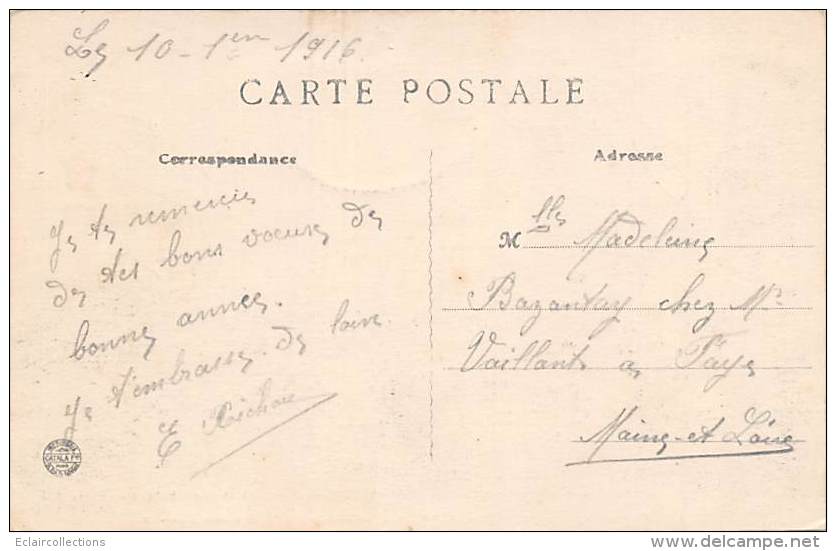 Le 10-1er 1916
CARTE POSTALE
Correspondance
Je te remercie
de tes bons voeux de
bonne année.
Je t'embrasse de loin.
E
Adresse
M lle Madeleine
Bazantay chez Mr
Vaillant à Faye
Maine-et Loire
CATALA Fres
Eclaircollections
www.delcampe.net